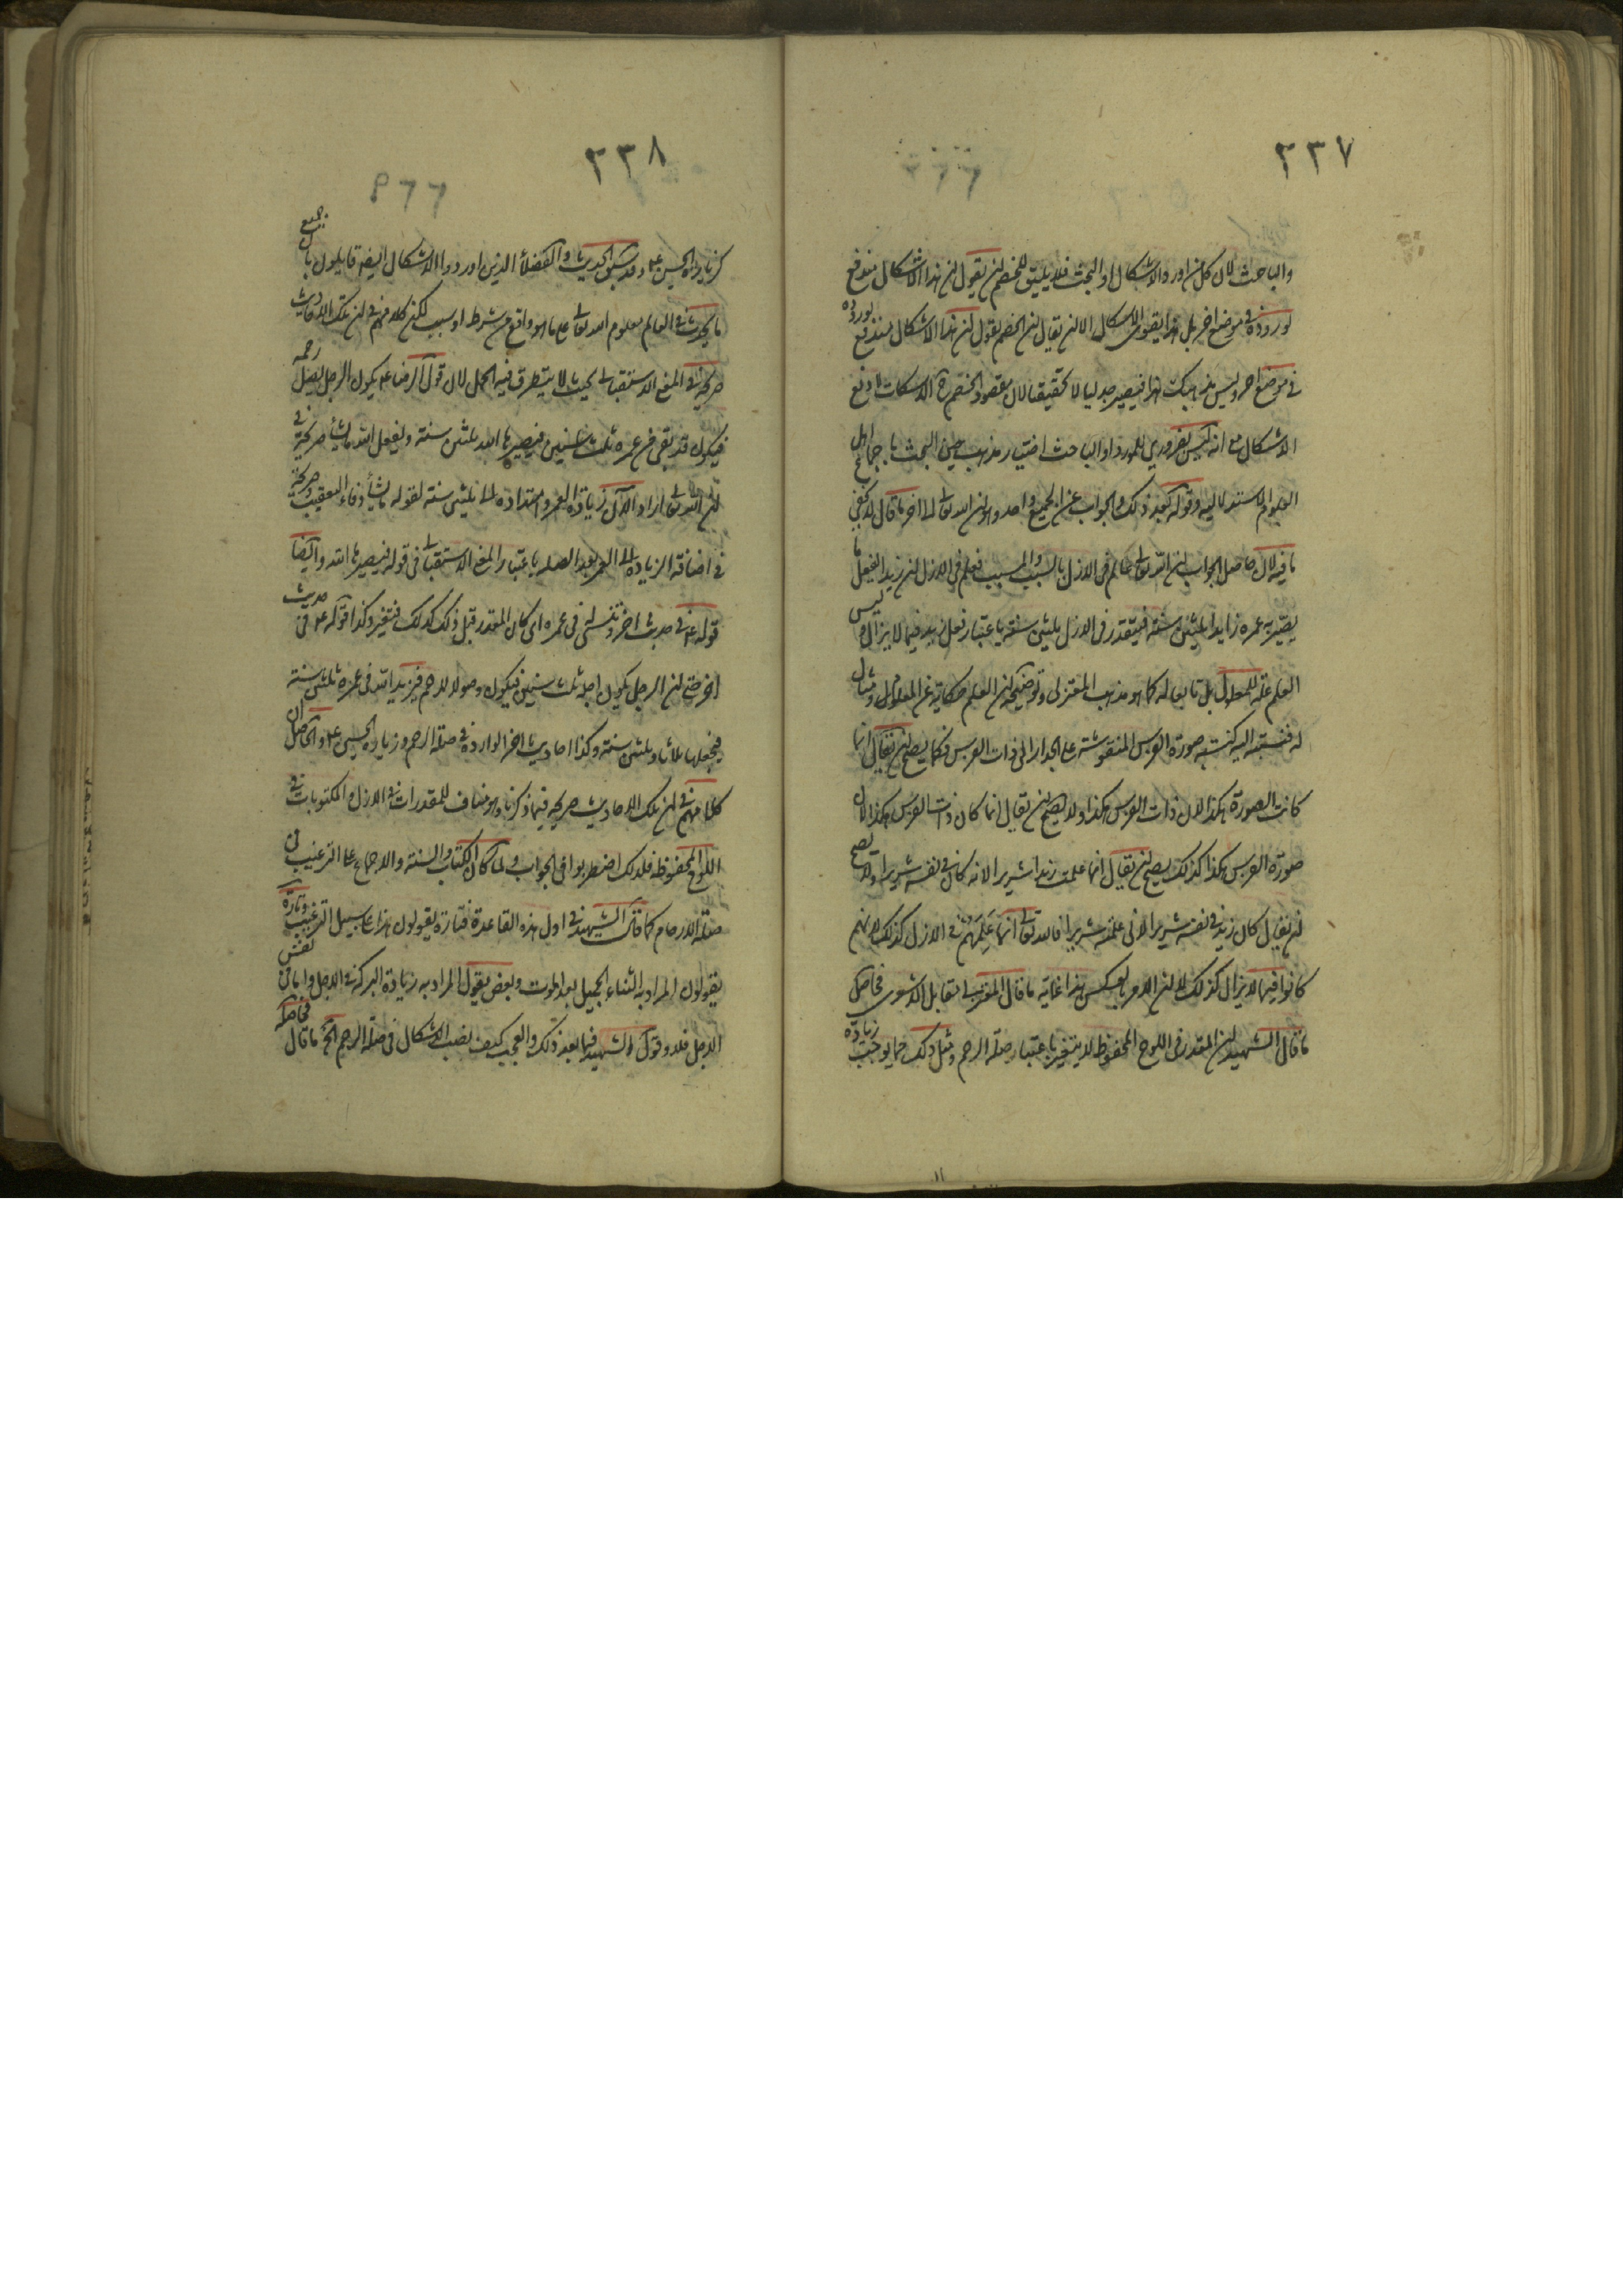 ٢٣٧
والباحث لان كل من اورد الاشكال او البحث فلا يليق للخصم ان يقول ان هذا الاشكال مندفع
لوروده في موضع اخر بل هذا يقوى الاشكال الا ان يقال ان الخصم يقول ان هذا الاشكال مندفع لوروده
في موضع اخر وليس مذهبك هذا فيصير جدليا لا تحقيقا لان مقصود الخصم الاسكات لا دفع
الاشكال مع انه ليس بضروري للمورد او الباحث اختيار مذهب حين البحث باجماع اهل
العلم والاستدلاليه وقوله بعد ذلك والجواب عن الجميع واحد وهو ان الله تعالى الى اخر ما قال لا يخفى
ما فيه لان حاصل الجواب ان الله تعالى عالم في الازل بالسبب والمسبب فعلم في الازل ان زيدا يفعل ما
يصير به عمره زايدا ثلثين سنة فيقدر في الازل ثلثين سنة باعتبار فعل زيد فيما لا يزال وليس
العلم علة للمعلول بل تابعا له كما هو مذهب المعتزلى وتوضيحه ان العلم حكاية عن المعلوم ومثال
له فنسبته اليه كنسبة صورة الفرس المنقوشة على الجدار الى ذات الفرس فكما يصح ان يقال انما
كانت الصورة هكذا لان ذات الفرس هكذا ولا يصح ان يقال انما كان ذات الفرس هكذا لان
صورة الفرس هكذا كذلك يصح ان يقال انما علمت زيدا شريرا لانه كان في نفسه شريرا ولا يصح
ان يقال كان زيد في نفسه شريرا لانى علمته شريرا فالله تعالى انما علمهم في الازل كذلك لانهم
كانوا فيما لا يزال كذلك لا ان الامر بالعكس هذا غاية ما قال المعتزلى مقابل الاشعرى فحاصل
ما قال الشهيد ان المقدر في اللوح المحفوظ لا يتغير باعتبار صلة الرحم ومثل ذلك مما يوجب زيادة
٢٣٨
كزيارة الحسين ع وقد سبق الحديث والفضلأ الذين اوردوا الاشكال ايضا قايلون بان جميع
ما يحدث في العالم معلوم الله تعالى على ما هو واقع من شرط او سبب لكن كلامهم في ان تلك الاحاديث
صريحة في المعنى الاستقبالى بحيث لا يتطرق فيه الحمل لان قول الرضا ع يكون الرجل يصل رحمه
فيكون قد بقى من عمره ثلث سنين فيصيرها الله ثلثين سنة ويفعل الله ما يشأ صريحة في
ان الله تعالى اراد الان زيادة العمر وامتداده الى ثلثين سنة لقوله ما يشأ وفاء التعقيب صريحة
في اضافة الزيادة الى العمر بعد الصلة باعتبار المعنى الاستقبالى في قوله فيصيرها الله وايضا
قوله ع في حديث اخر وتنسئ في عمره اى كان المقدر قبل ذلك كذلك فتغير وكذا قوله ع في حديث
اخر حتى ان الرجل يكون اجله ثلث سنين فيكون وصولا للرحم فيزيد الله في عمره ثلثين سنة
فيجعلها ثلاثا وثلثين سنة وكذا احاديث اخر الواردة في صلة الرحم وزيارة الحسين ع والحاصل ان
كلامهم في ان تلك الاحاديث صريحة فيما ذكرنا وهو مناف للمقدرات في الازل والمكتوبات في
اللوح المحفوظة فلذلك اضطربوا في الجواب ولما كان الكتاب والسنة والاجماع على الترغيب في
صلة الارحام كما قال الشهيد في اول هذه القاعدة فتارة يقولون هذا على سبيل الترغيب وتارة
يقولون المراد به الثناء الجميل بعد الموت وبعض يقول المراد به زيادة البركة في الاجل واما في نفس
الاجل فلا وقول الشهيد فيما بعد ذلك والعجب كيف نصب الاشكال في صلة الرحم الخ ما قال فحاصله